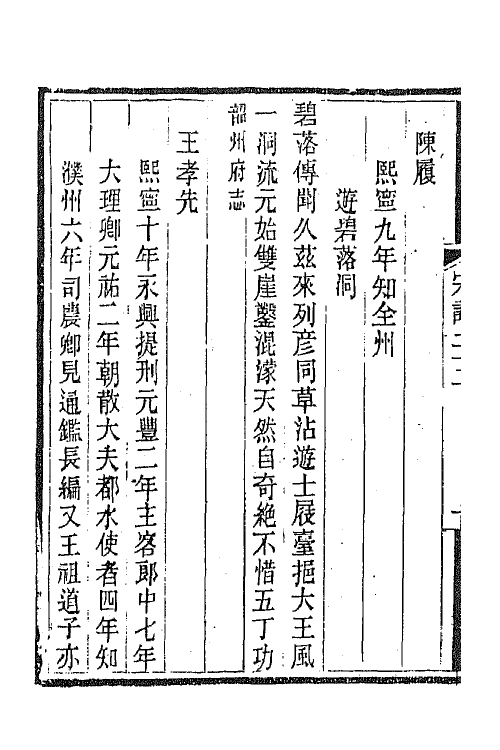 陳履
熙寧九年知全州
遊碧落洞
碧落傳聞久茲來列彦同草沾遊士屐臺挹大王風
一洞流元始雙崖鑿混濛天然自奇絶不惜五丁功
韶州府志
王孝先
熙寧十年永興提刑元豐二年主客郎中七年
大理卿元祐二年朝散大夫都水使者四年知
濮州六年司農卿見通鑑長編又王祖道子亦